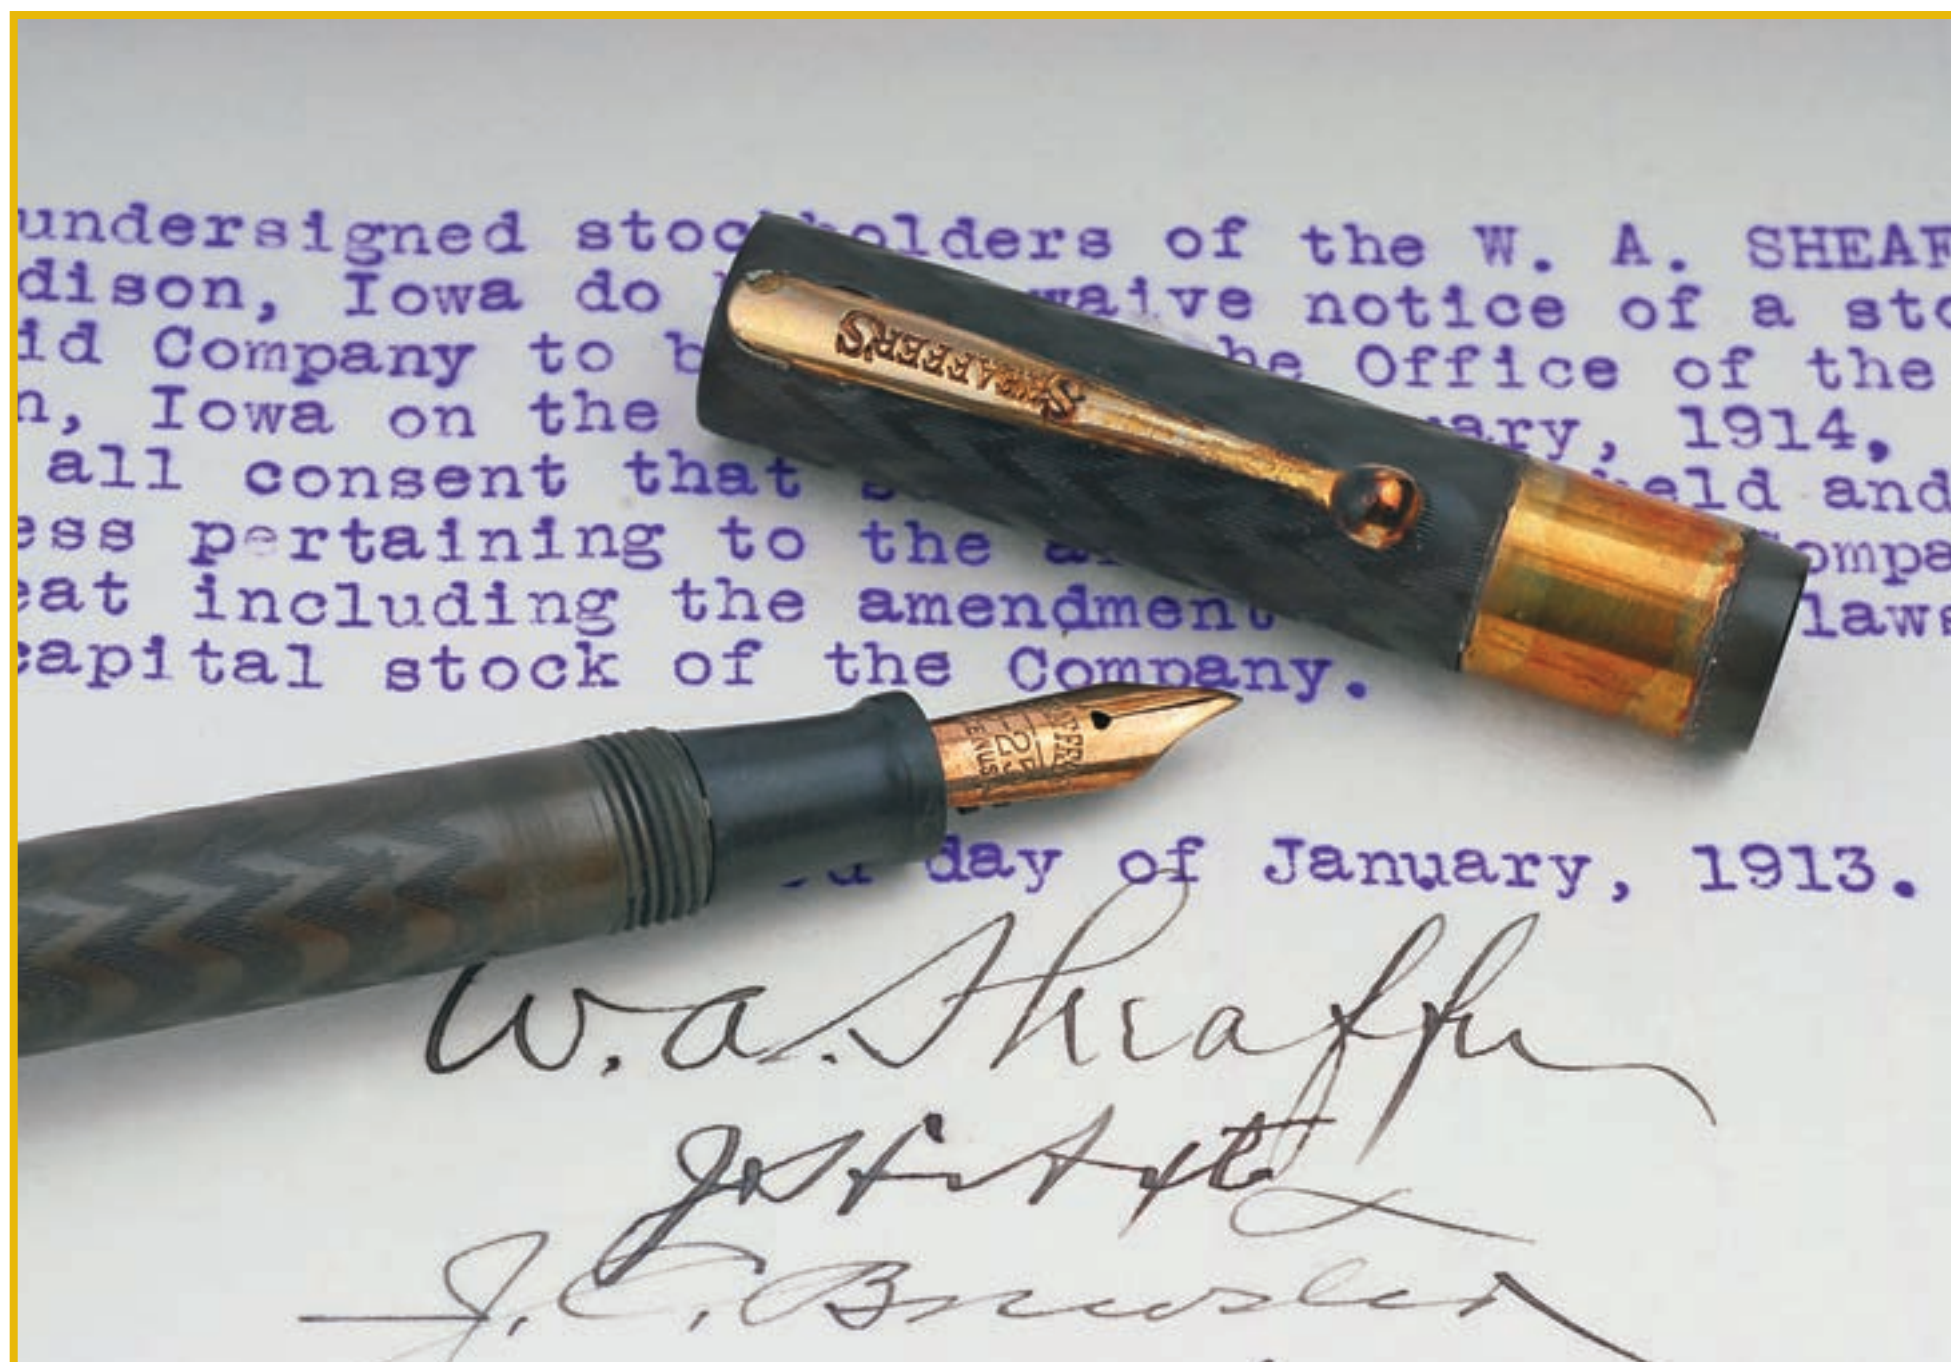 undersigned stockholders of the W. A. SHEAF
dison, Iowa do waive notice of a sto
id Company to b he Office of the
n, Iowa on the ary, 1914,
all consent that s held and
ess pertaining to the a ompa
eat including the amendment laws
capital stock of the Company.
day of January, 1913.
SHEAFFER'S
W. A. Sheaffer
J. C. Brewster